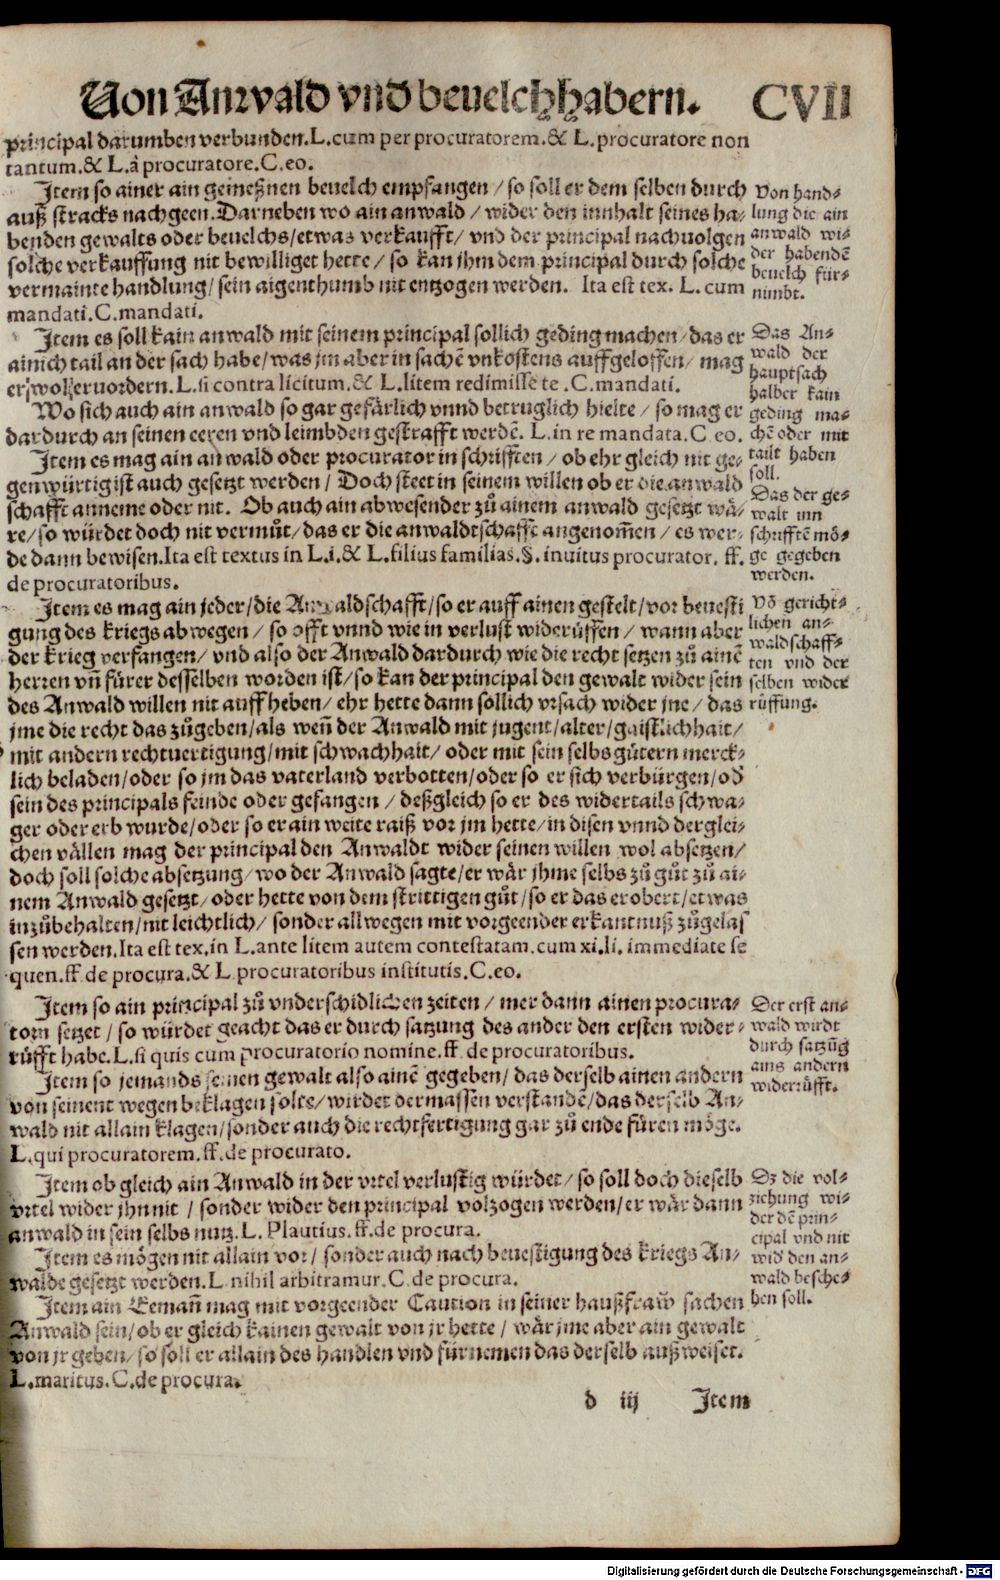 Von Anwald vnd beuelchhabern. CVII
principal darumben verbunden. L. cum per procuratorem. & L. procuratore non
tantum. & L. à procuratore. C. eo.
Item so ainer ain gemeßnen beuelch empfangen / so soll er dem selben durch
auß stracks nachgeen. Darneben wo ain anwald / wider den innhalt seines ha-
benden gewalts oder beuelchs / etwas verkaufft / vnd der principal nachuolgen
solche verkauffung nit bewilliget hette / so kan jhm dem principal durch solche
vermainte handlung / sein aigenthumb nit entzogen werden. Ita est tex. L. cum
mandati. C. mandati.
Von hand-
lung die ain
anwald wi-
der habendē
beuelch für-
nimbt.
Item es soll kain anwald mit seinem principal sollich geding machen / das er
ainich tail an der sach habe / was jm aber in sachē vnkostens auffgeloffen / mag
er wol eruordern. L. si contra licitum. & L. litem redimisse te. C. mandati.
Wo sich auch ain anwald so gar gefärlich vnnd betruglich hielte / so mag er
dardurch an seinen eeren vnd leimbden gestrafft werdē. L. in re mandata. C. eo.
Das An-
wald der
hauptsach
halber kain
geding ma-
chē oder mit
tailt haben
soll.
Item es mag ain anwald oder procurator in schrifften / ob ehr gleich nit ge-
genwürtig ist auch gesetzt werden / Doch steet in seinem willen ob er die anwald
schafft anneme oder nit. Ob auch ain abwesender zů ainem anwald gesetzt wä-
re / so würdet doch nit vermůt / das er die anwaldtschafft angenom̄en / es wer-
de dann bewisen. Ita est textus in L. i. & L. filius familias. §. inuitus procurator. ff.
de procuratoribus.
Das der ge-
walt inn
schrifftē mö-
ge gegeben
werden.
Item es mag ain jeder / die Anwaldschafft / so er auff ainen gestelt / vor beuesti
gung des kriegs abwegen / so offt vnnd wie in verlust widerůffen / wann aber
der krieg verfangen / vnd also der Anwald dardurch wie die recht setzen zů ainē
herren vn̄ fürer desselben worden ist / so kan der principal den gewalt wider sein
des Anwald willen nit auffheben / ehr hette dann sollich vrsach wider jne / das
jme die recht das zůgeben / als wen̄ der Anwald mit jugent / alter / gaistlichhait /
mit andern rechtuertigung / mit schwachhait / oder mit sein selbs gütern merck-
lich beladen / oder so jm das vaterland verbotten / oder so er sich verbürgen / od̄
sein des principals feinde oder gefangen / deßgleich so er des widertails schwa-
ger oder erb wurde / oder so er ain weite raiß vor jm hette / in disen vnnd derglei-
chen vällen mag der principal den Anwaldt wider seinen willen wol absetzen /
doch soll solche absetzung / wo der Anwald sagte / er wär jhme selbs zů gůt zů ai-
nem Anwald gesetzt / oder hette von dem strittigen gůt / so er das erobert / etwas
inzůbehalten / nit leichtlich / sonder allwegen mit vorgeender erkantnuß zůgelas
sen werden. Ita est tex. in L. ante litem autem contestatam. cum xi. li. immediate se
quen. ff. de procura. & L. procuratoribus institutis. C. eo.
Vō gericht-
lichen an-
waldschaff-
ten vnd der
selben wider
rüffung.
Item so ain principal zů vnderschidlichen zeiten / mer dann ainen procura-
torn setzet / so würdet geacht das er durch satzung des ander den ersten wider-
rüfft habe. L. si quis cum procuratorio nomine. ff. de procuratoribus.
Der erst an-
wald wirdt
durch satzūg
ains andern
widerrüfft.
Item so jemands seinen gewalt also ainē gegeben / das derselb ainen andern
von seinent wegen beklagen solte / wirdet dermassen verstandē / das derselb An-
wald nit allain klagen / sonder auch die rechtfertigung gar zů ende füren möge.
L. qui procuratorem. ff. de procurato.
Item ob gleich ain Anwald in der vrtel verlustig würdet / so soll doch dieselb
vrtel wider jhn nit / sonder wider den principal volzogen werden / er wär dann
anwald in sein selbs nutz. L. Plautius. ff. de procura.
Dz die vol-
ziehung wi-
der dē prin-
cipal vnd nit
wid̄ den an-
wald besche-
hen soll.
Item es mögen nit allain vor / sonder auch nach beuestigung des kriegs An-
walde gesetzt werden. L. nihil arbitramur. C. de procura.
Item ain Eeman̄ mag mit vorgeender Caution in seiner haußfraw̄ sachen
Anwald sein / ob er gleich kainen gewalt von jr hette / wär jme aber ain gewalt
von jr geben / so soll er allain des handlen vnd fürnemen das derselb außweiset.
L. maritus. C. de procura.
d iij Item
Digitalisierung gefördert durch die Deutsche Forschungsgemeinschaft - DFG